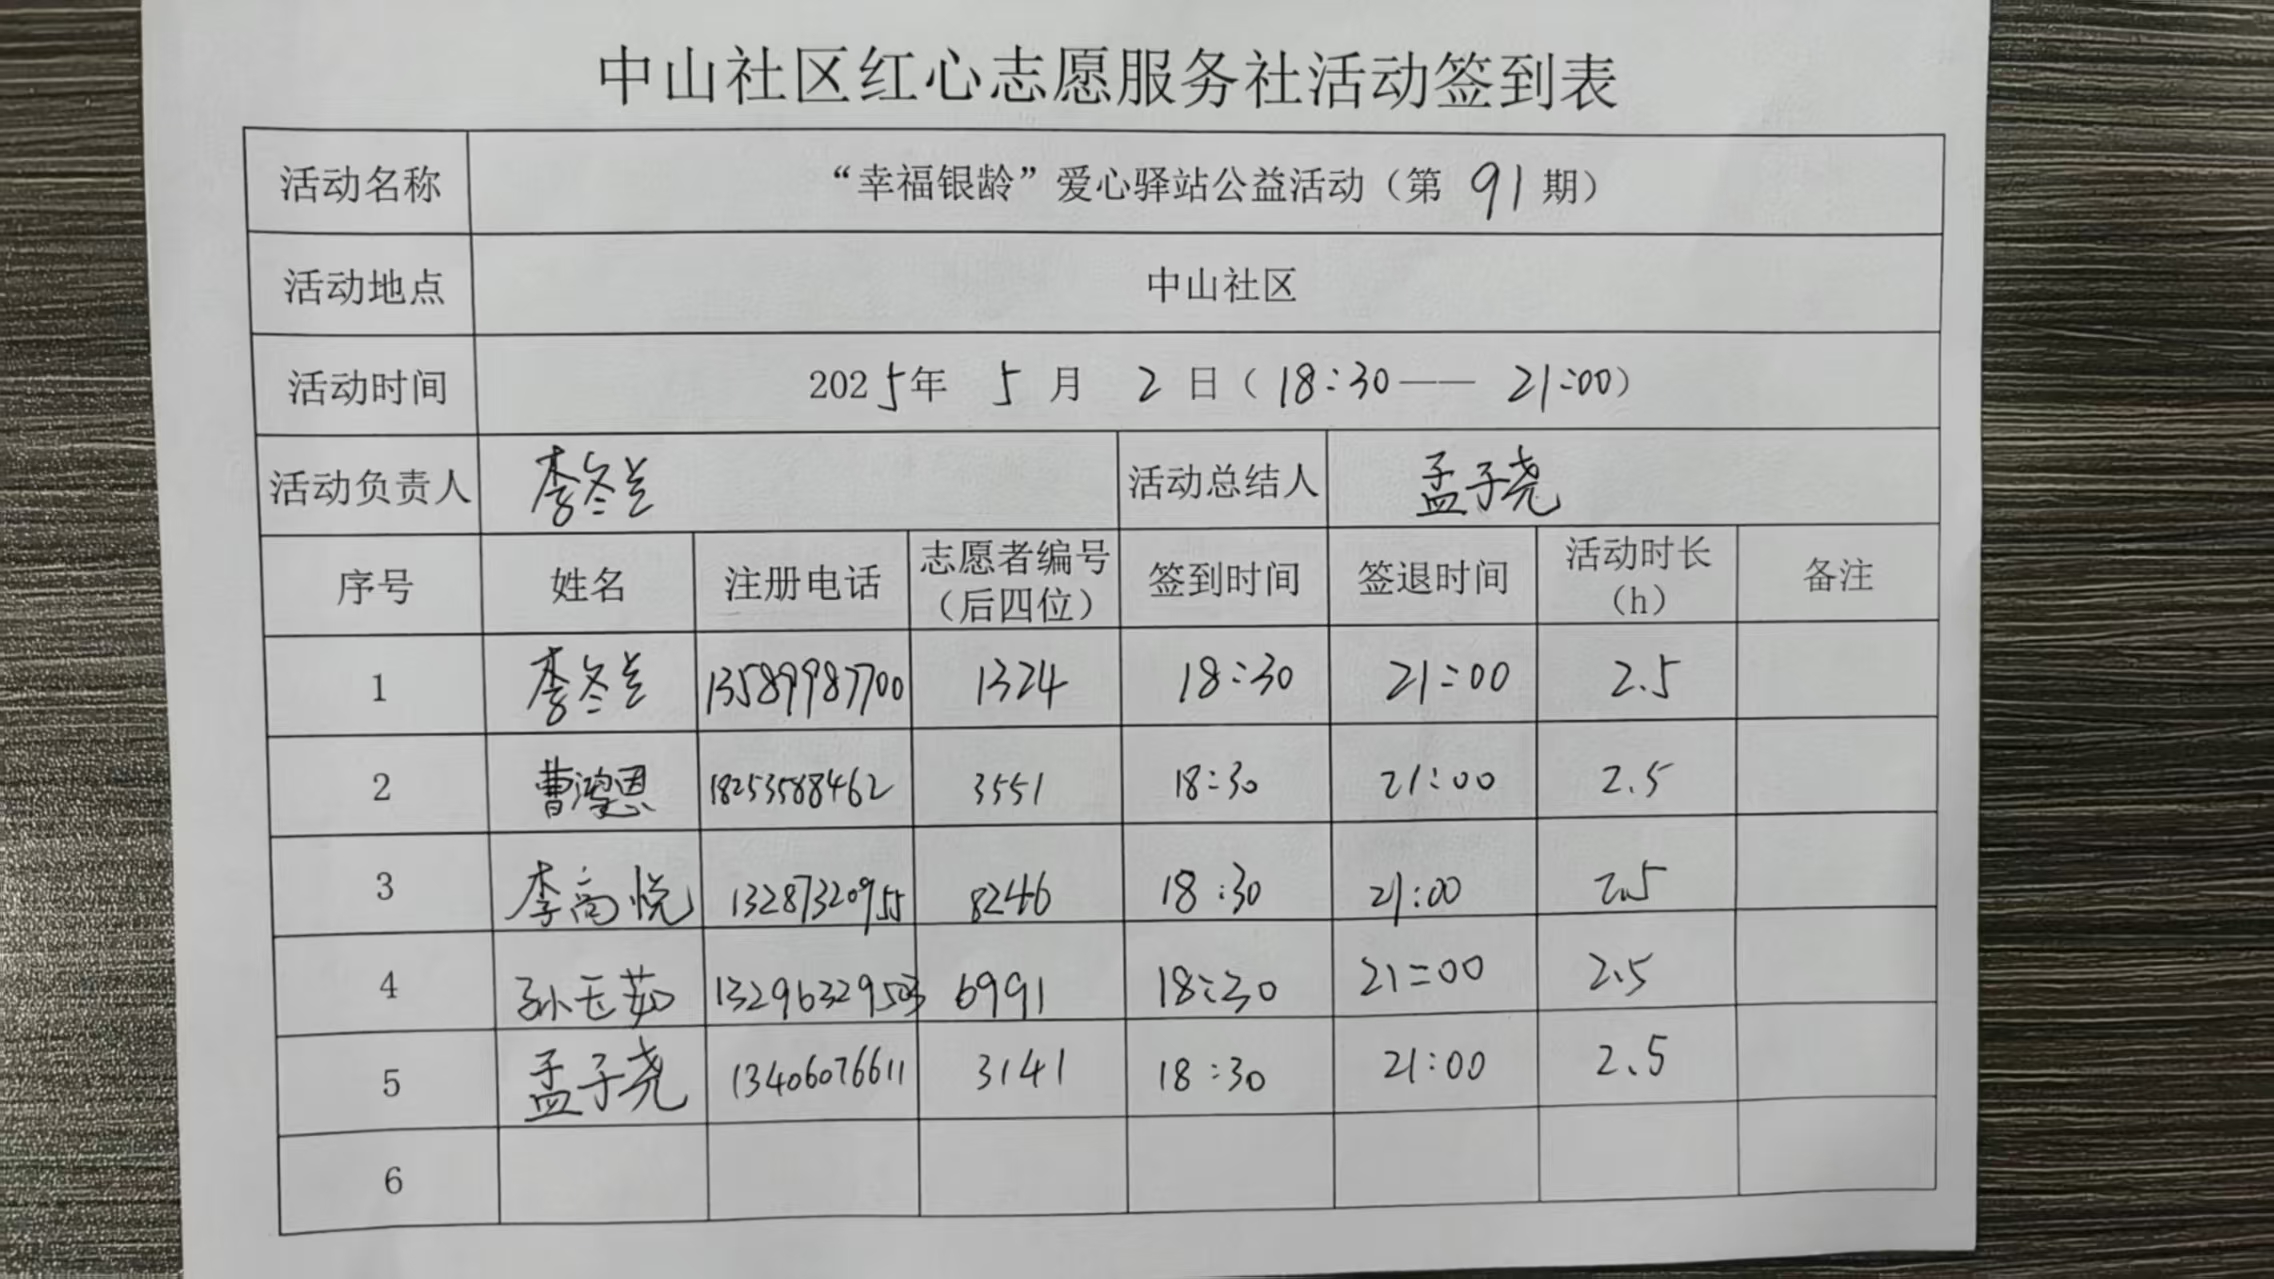 中山社区红心志愿服务社活动签到表
活动名称 “幸福银龄”爱心驿站公益活动（第 91 期）
活动地点 中山社区
活动时间 2025年 5 月 2 日（18:30—— 21:00）
活动负责人 李冬兰 活动总结人 孟子尧
序号 姓名 注册电话 志愿者编号（后四位） 签到时间 签退时间 活动时长（h） 备注
1 李冬兰 13589987700 1324 18:30 21:00 2.5
2 曹鸿恩 18253588462 3551 18:30 21:00 2.5
3 李高悦 13287320955 8246 18:30 21:00 2.5
4 孙玉茹 6991 18:30 21:00 2.5
5 孟子尧 13406076611 3141 18:30 21:00 2.5
6